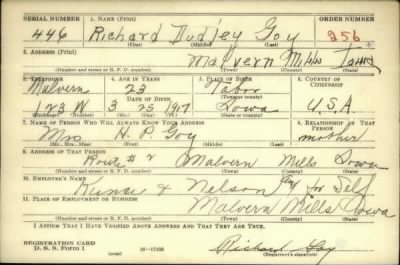 SERIAL NUMBER 1. NAME (Print) ORDER NUMBER
446 Richard Dudley Goy 256
(First) (Middle) (Last)
2. ADDRESS (Print)
Malvern Mills Iowa
(Number and street or R. F. D. number) (Town) (County) (State)
3. TELEPHONE 4. AGE IN YEARS 5. PLACE OF BIRTH 6. COUNTRY OF CITIZENSHIP
Malvern 23 Tabor
DATE OF BIRTH
123 W 3 25 1917 Iowa U.S.A.
(Mo.) (Day) (Yr.)
7. NAME OF PERSON WHO WILL ALWAYS KNOW YOUR ADDRESS 8. RELATIONSHIP OF THAT PERSON
Mrs H. P. Goy mother
(Mr., Mrs., Miss) (First) (Middle) (Last)
9. ADDRESS OF THAT PERSON
Route # 2 Malvern Mills Iowa
(Number and street or R. F. D. number) (Town) (County) (State)
10. EMPLOYER'S NAME
& Nelson for Self
11. PLACE OF EMPLOYMENT OR BUSINESS
Malvern Mills Iowa
(Number and street or R. F. D. number) (Town) (County) (State)
I AFFIRM THAT I HAVE VERIFIED ABOVE ANSWERS AND THAT THEY ARE TRUE.
REGISTRATION CARD
D. S. S. Form 1 (over) Richard Goy
(Registrant's signature)